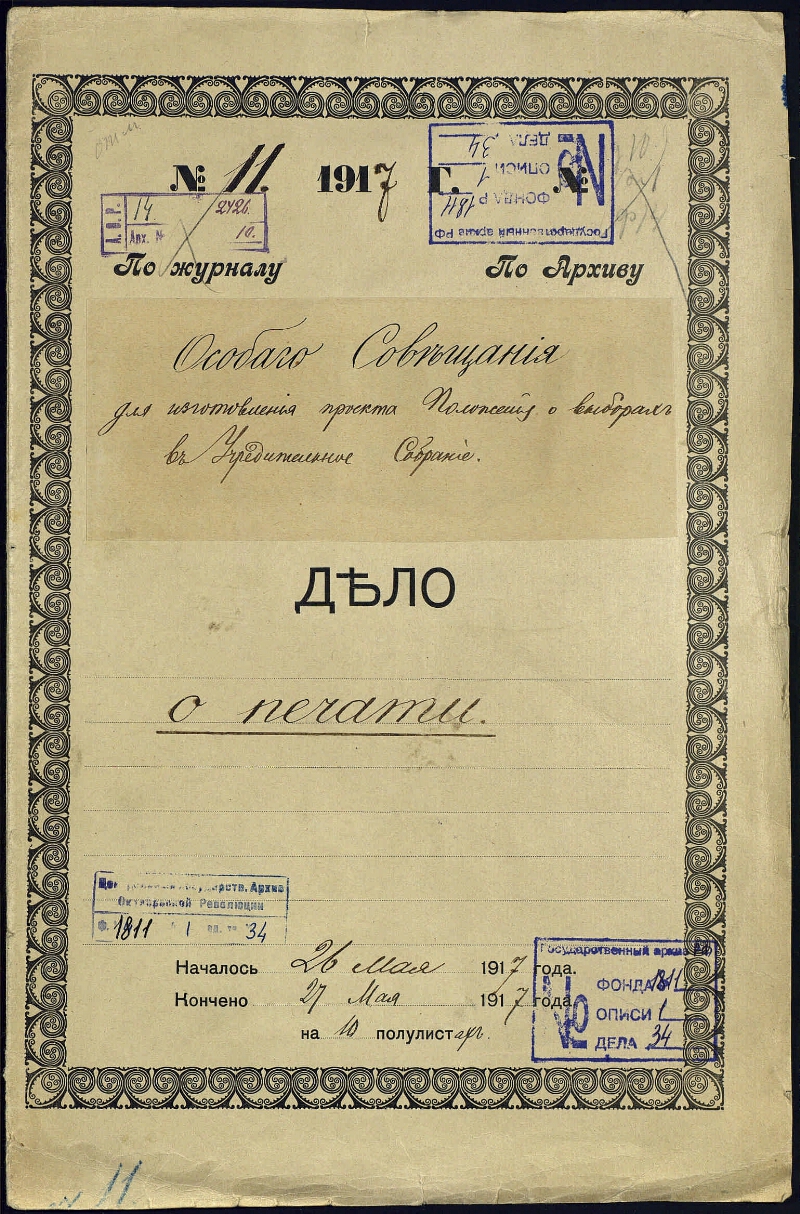 № 11. 1917 г. №
А.О.Р. 14 2426.
Арх. № 10.
Государственный архив РФ
ФОНДА Р 1811
ОПИСИ 1
ДЕЛА 34
№
По журналу По Архиву
Особаго Совѣщанія
для изготовленія проекта Положенія о выборахъ
въ Учредительное Собраніе.
ДѢЛО
о печати.
Государств. Архив
Октябрьской Революции
Ф. 1811 1 34
Началось 26 Мая 1917 года.
Кончено 27 Мая 1917 года
на 10 полулистахъ.
Государственный архив РФ
№
ФОНДА 1811
ОПИСИ 1
ДЕЛА 34
11